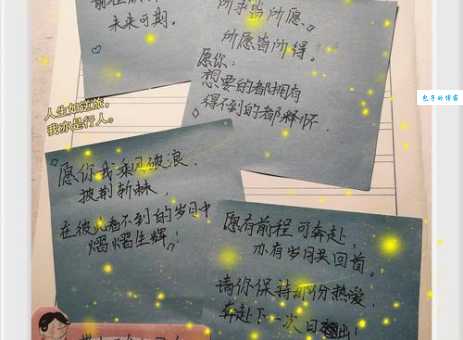 未来可期。
所求皆所愿。
所愿皆所得。
愿你:
想要的都拥有
得不到的都释怀
包子的博客
人生如逆旅,
我亦是行人。
愿你我乘风破浪、
披荆斩棘
在彼此看不到的岁月中
熠熠生辉!
愿有前程可奔赴,
亦有岁月共回首。
请你保持那份热爱,
奔赴下一次日出!